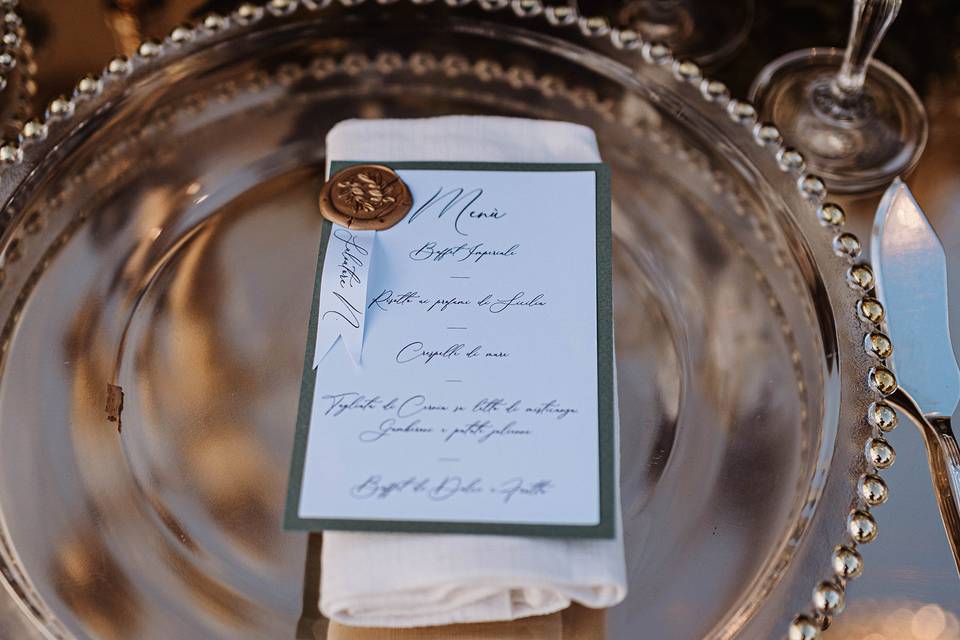 Menù
Buffet Imperiale
Salvatore N
Risotto ai profumi di Sicilia
Crespelle di mare
Tagliata di Cernia su letto di misticanza
Gamberoni e patate julienne
Buffet di Dolci e Frutta